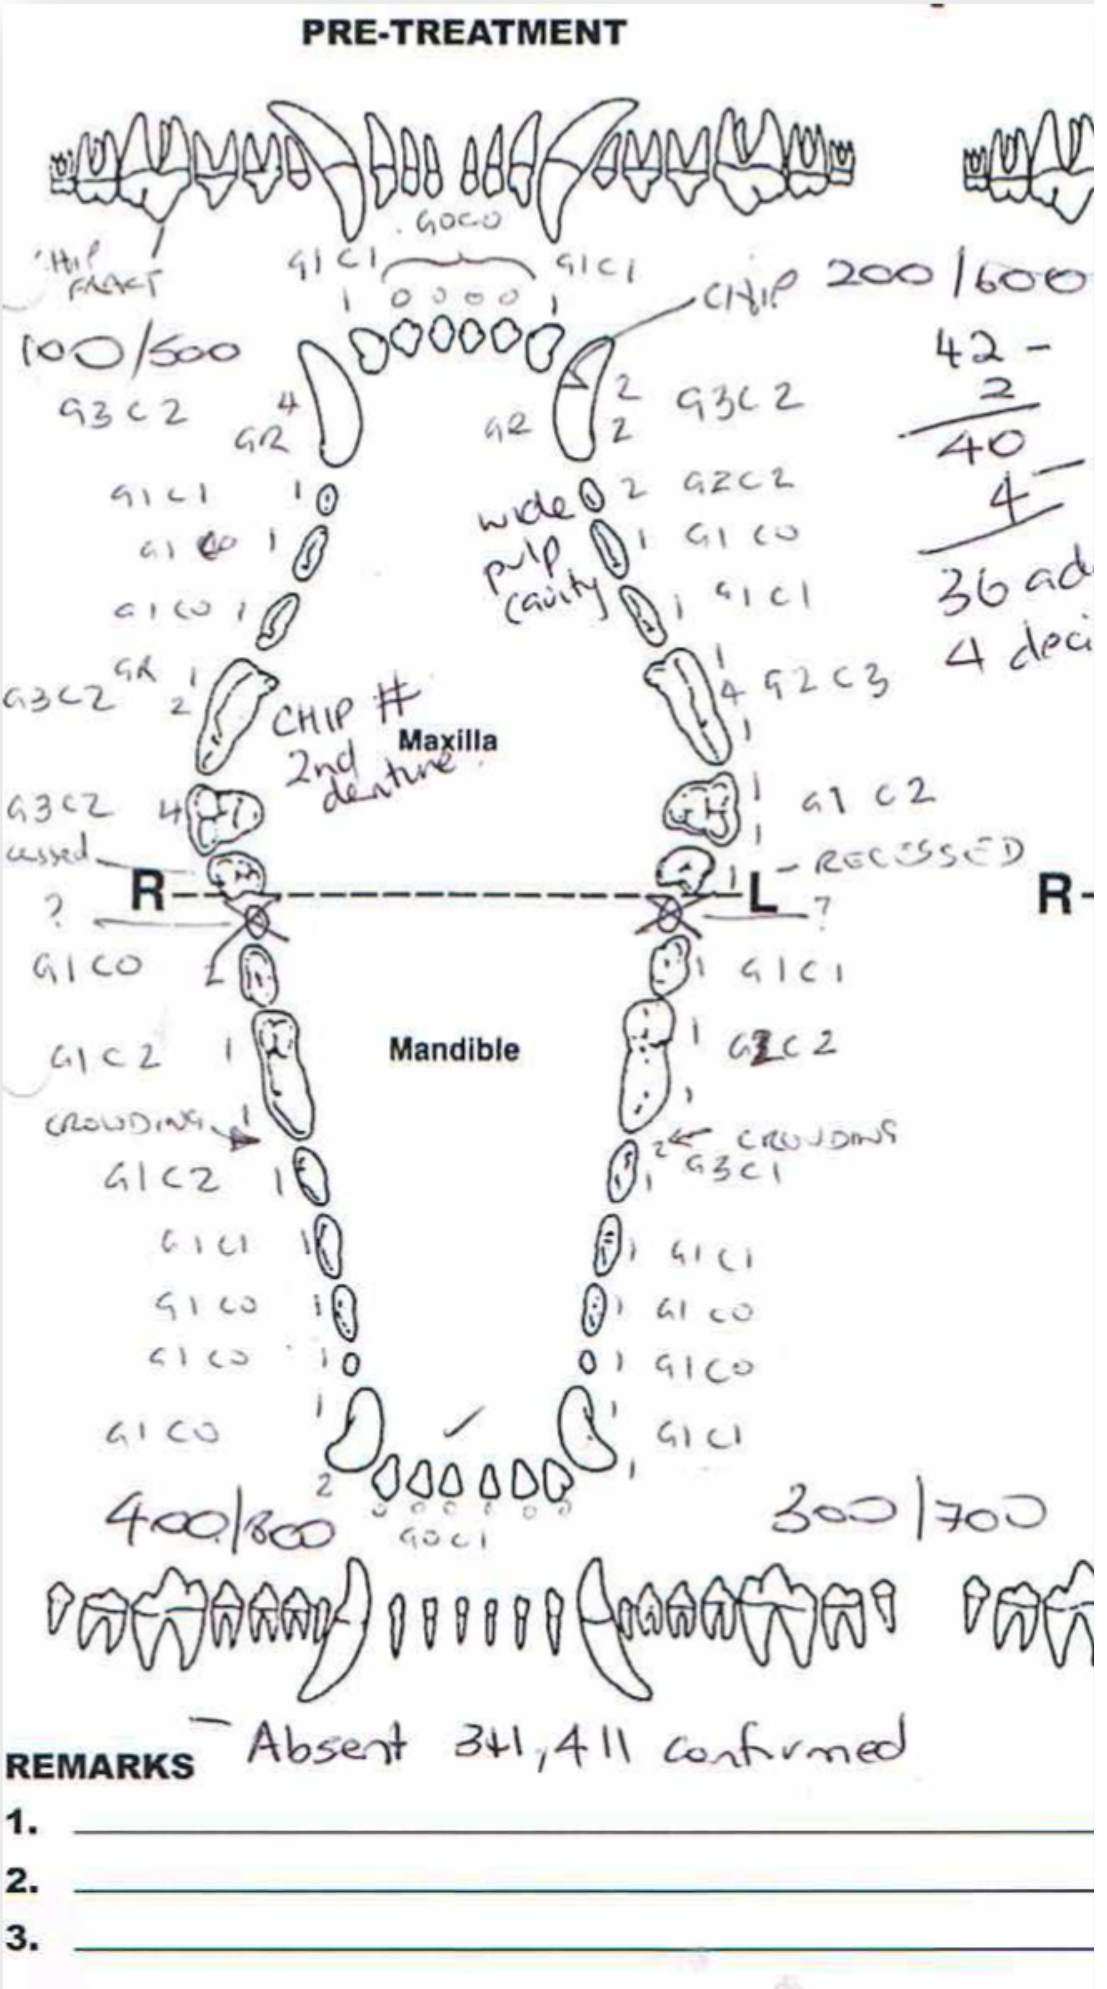 PRE-TREATMENT
G0C0
CHIP
FRACT
G1C1
G1C1
1 0 0 0 0 1
CHIP
200/600
100/500
42 -
2
40
4 -
36 ad
4 deci
G3C2 4
GR
GR
2 G3C2
2
G1C1 1
wide
pulp
cavity
2 G2C2
G1C0 1
1 G1C0
G1C0 1
1 G1C1
GR 1
G3C2 2
1
4 G2C3
1
CHIP #
2nd
denture
Maxilla
G3C2 4
1 G1C2
1
cessed
1 - RECESSED
R
L
R-
?
?
G1C0
1 G1C1
Mandible
G1C2 1
1
1 C2
1
CROWDING
2 CROWDING
G1C2 1
1 G3C1
G1C1 1
1 G1C1
G1C0 1
1 G1C0
G1C0 1
1 G1C0
G1C0 1
2
1 G1C1
1
✓
400/800
0 0 0 0 0
G0C1
300/700
- Absent 311, 411 confirmed
REMARKS
1.
2.
3.